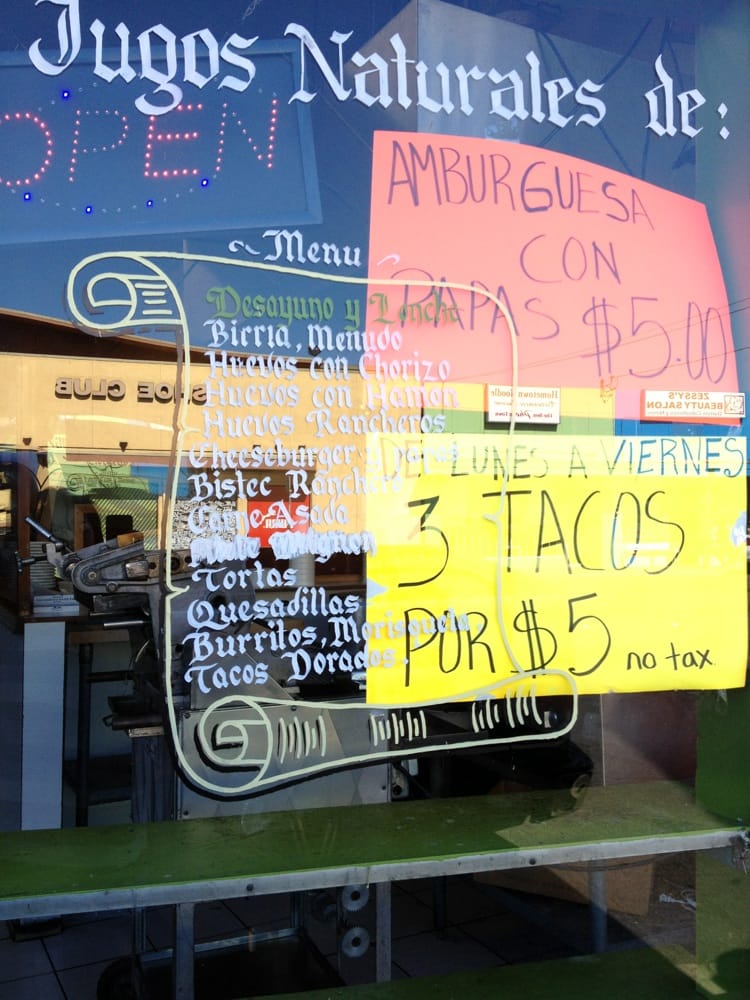 Jugos Naturales de:
OPEN
AMBURGUESA
CON
PAPAS $5.00
~Menu~
Desayuno y Lonche
Birria, Menudo
Huevos con Chorizo
Huevos con Hamon
Huevos Rancheros
Cheeseburger y papas
Bistec Ranchero
Carne Asada
Tortas
Quesadillas
Burritos, Morisqueta.
Tacos Dorados.
SHOE CLUB
Hometown Noodle
ZESSY'S
BEAUTY SALON
DE LUNES A VIERNES
3 TACOS
POR $5 no tax